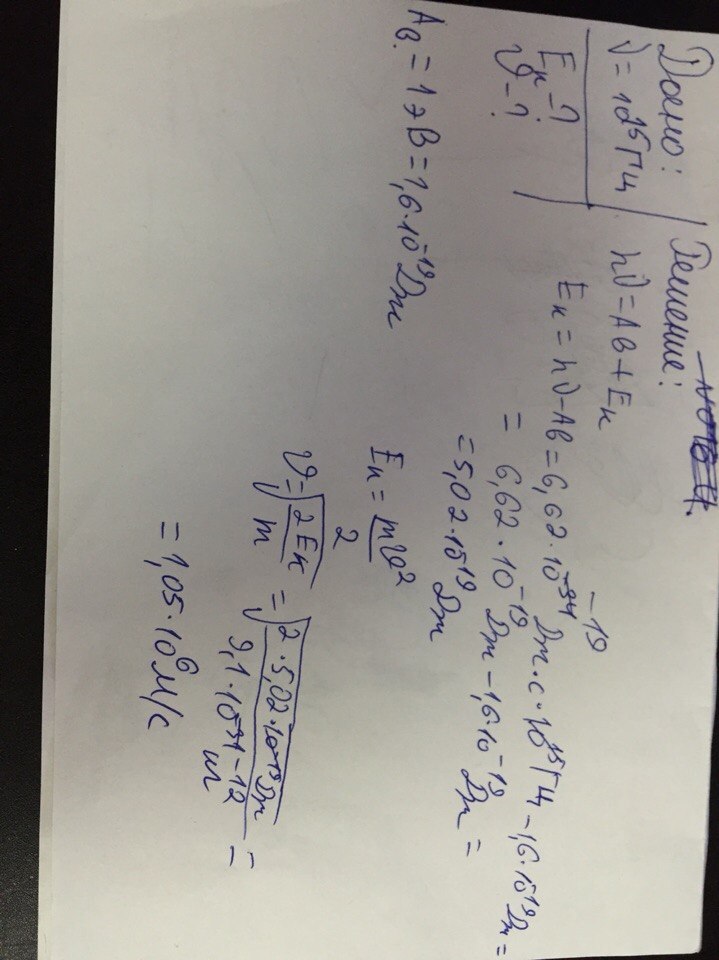 Дано:
ν = 10¹⁵ Гц
Eк - ?
υ - ?
Aв. = 1 эВ = 1,6·10⁻¹⁹ Дж
Решение:
hν = Aв + Eк
Eк = hν - Aв = 6,62·10⁻³⁴ Дж·с·10¹⁵ Гц - 1,6·10⁻¹⁹ Дж =
= 6,62·10⁻¹⁹ Дж - 1,6·10⁻¹⁹ Дж =
= 5,02·10⁻¹⁹ Дж
Eк = mυ²/2
υ = √(2Eк/m) = √(2·5,02·10⁻¹⁹ Дж / 9,1·10⁻³¹ кг) =
= 1,05·10⁶ м/с